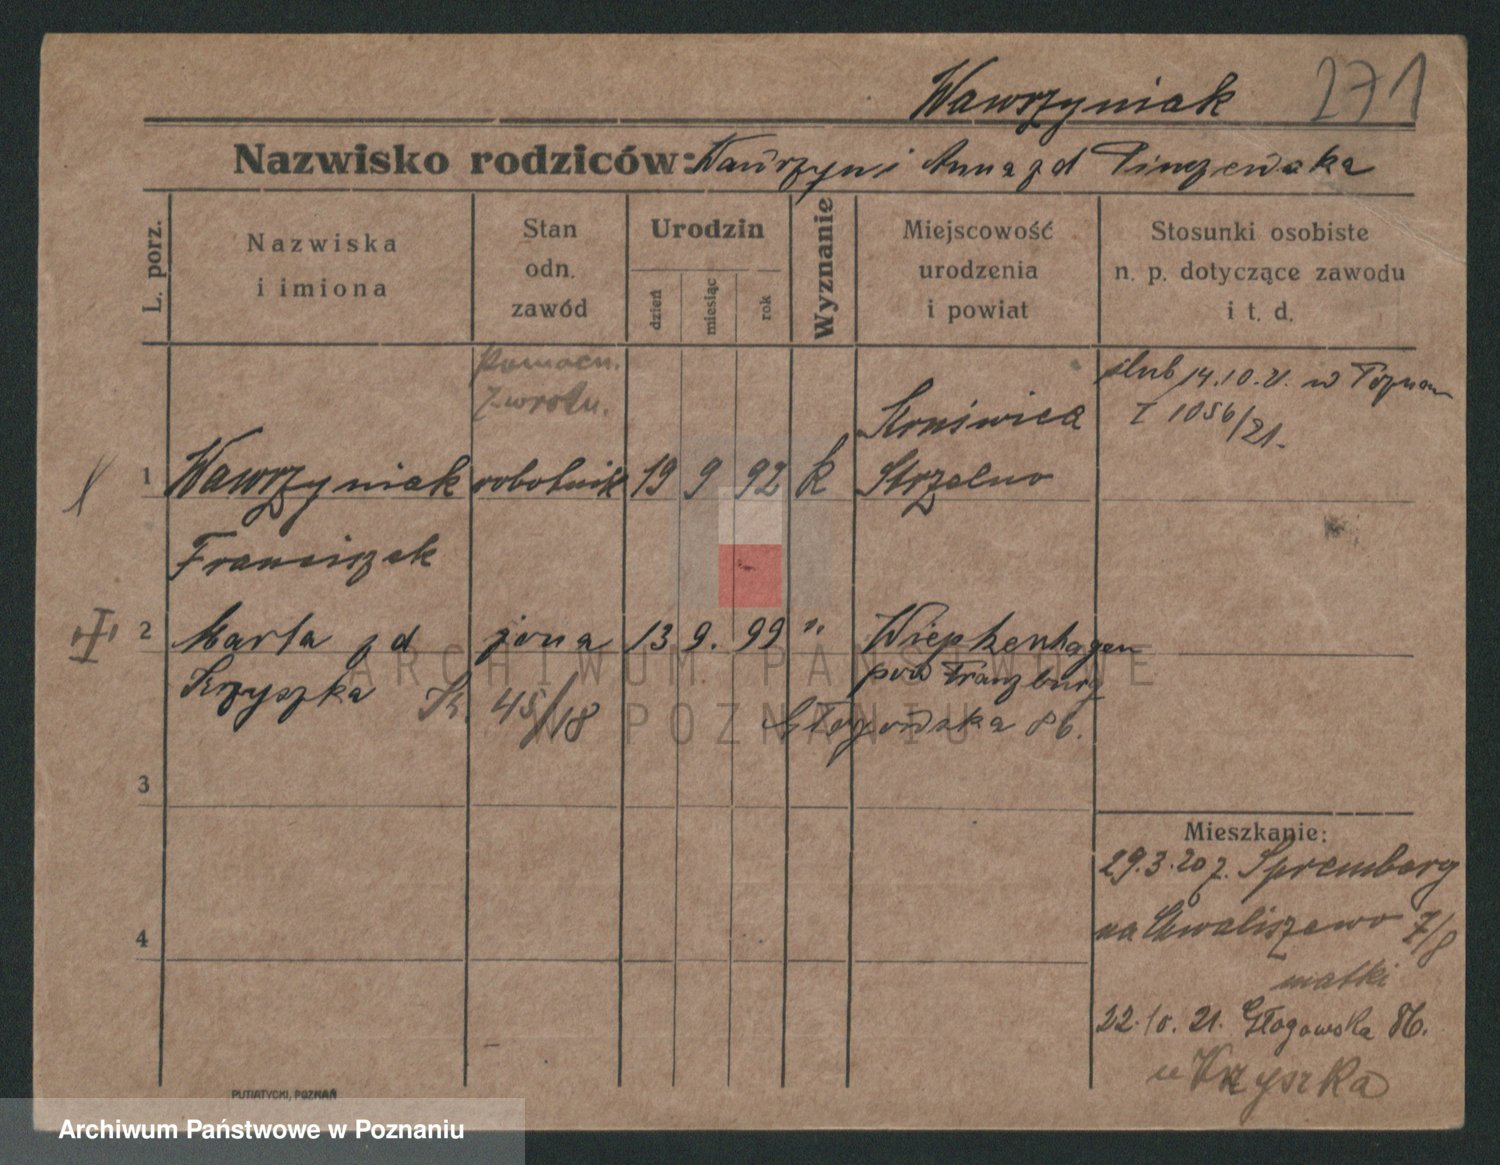 Wawrzyniak 271
Nazwisko rodziców: Wawrzyn i Anna zd Pinczewska
L. porz.
Nazwiska
i imiona
Stan
odn.
zawód
Urodzin
dzień
miesiąc
rok
Wyznanie
Miejscowość
urodzenia
i powiat
Stosunki osobiste
n. p. dotyczące zawodu
i t. d.
pomocn.
zwrotn.
ślub 14.10.21. w Poznan
I 1056/21.
Kruświca
1 Wawrzyniak robotnik 19 9 92 k Strzelno
Franciszek
2 Marta zd żona 13 9. 99 " Wiepkenhagen
Krzyszka K. 45/18 pow Franzburg
Głogowska 86.
3
4
Mieszkanie:
29.3.20 z. Spremberg
na Chwaliszewo 7/8
matki
22.10.21. Głogowska 86.
u Krzyszka
PUTIATYCKI, POZNAŃ
ARCHIWUM PAŃSTWOWE
W POZNANIU
Archiwum Państwowe w Poznaniu